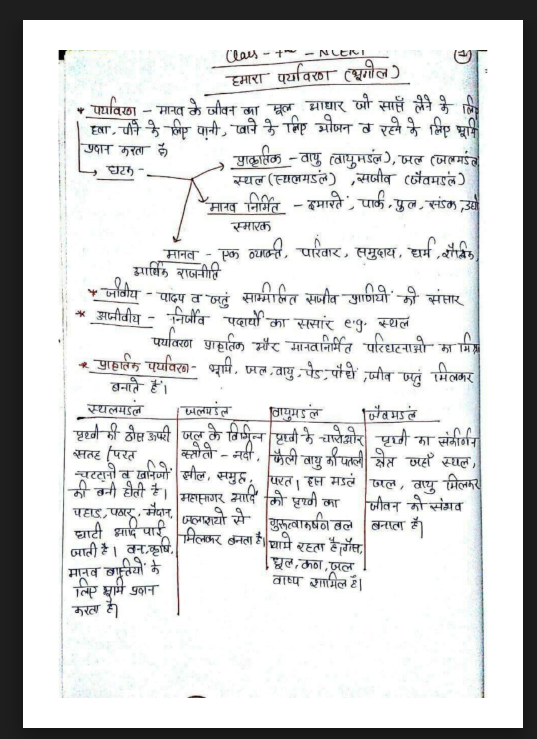 Class - 7th - NCERT
(1)
हमारा पर्यावरण (भूगोल)
* पर्यावरण - मानव के जीवन का मूल आधार जो साँस लेने के लिए
हवा, पीने के लिए पानी, खाने के लिए भोजन व रहने के लिए भूमि
प्रदान करता है
घटक -
प्राकृतिक - वायु (वायुमडंल), जल (जलमडंल
स्थल (स्थलमडंल) , सजीव (जैवमडंल)
मानव निर्मित - इमारतें, पार्क, पुल, सडक, उद्यो
स्मारक
मानव - एक व्यक्ति, परिवार, समुदाय, धर्म, शैक्षिक,
आर्थिक राजनीति
* जीवीय - पादप व जतुं सम्मिलित सजीव प्राणियों का संसार
* अजीवीय - निर्जीव पदार्थों का ससांर e.g. स्थल
पर्यावरण प्राकृतिक और मानवनिर्मित परिघटनाओ का मिश्र
* प्राकृतिक पर्यावरण - भूमि, जल, वायु, पेड, पौधे, जीव जतुं मिलकर
बनाते हैं।
स्थलमडंल
पृथ्वी की ठोस ऊपरी
सतह/परत
चटटानो व खनिजों
की बनी होती है।
पहाड, पठार, मैदान,
घाटी आदि पाई
जाती है। वन, कृषि,
मानव बास्तियों के
लिए भूमि प्रदान
करता है।
जलमडंल
जल के विभिन्न
स्त्रोतो - नदी,
झील, समुद्र,
महासागर आदि
जलाशयो से
मिलकर बनता है।
वायुमडंल
पृथ्वी के चारोओर
फैली वायु की पतली
परत। इस मडलं
को पृथ्वी का
गुरूत्वाकर्षण बल
थामे रहता है। गैस,
धूल, कण, जल
वाष्प शामिल है।
जैवमडंल
पृथ्वी का संकीर्ण
क्षेत्र जहाँ स्थल,
जल, वायु मिलकर
जीवन को संभव
बनाता है।